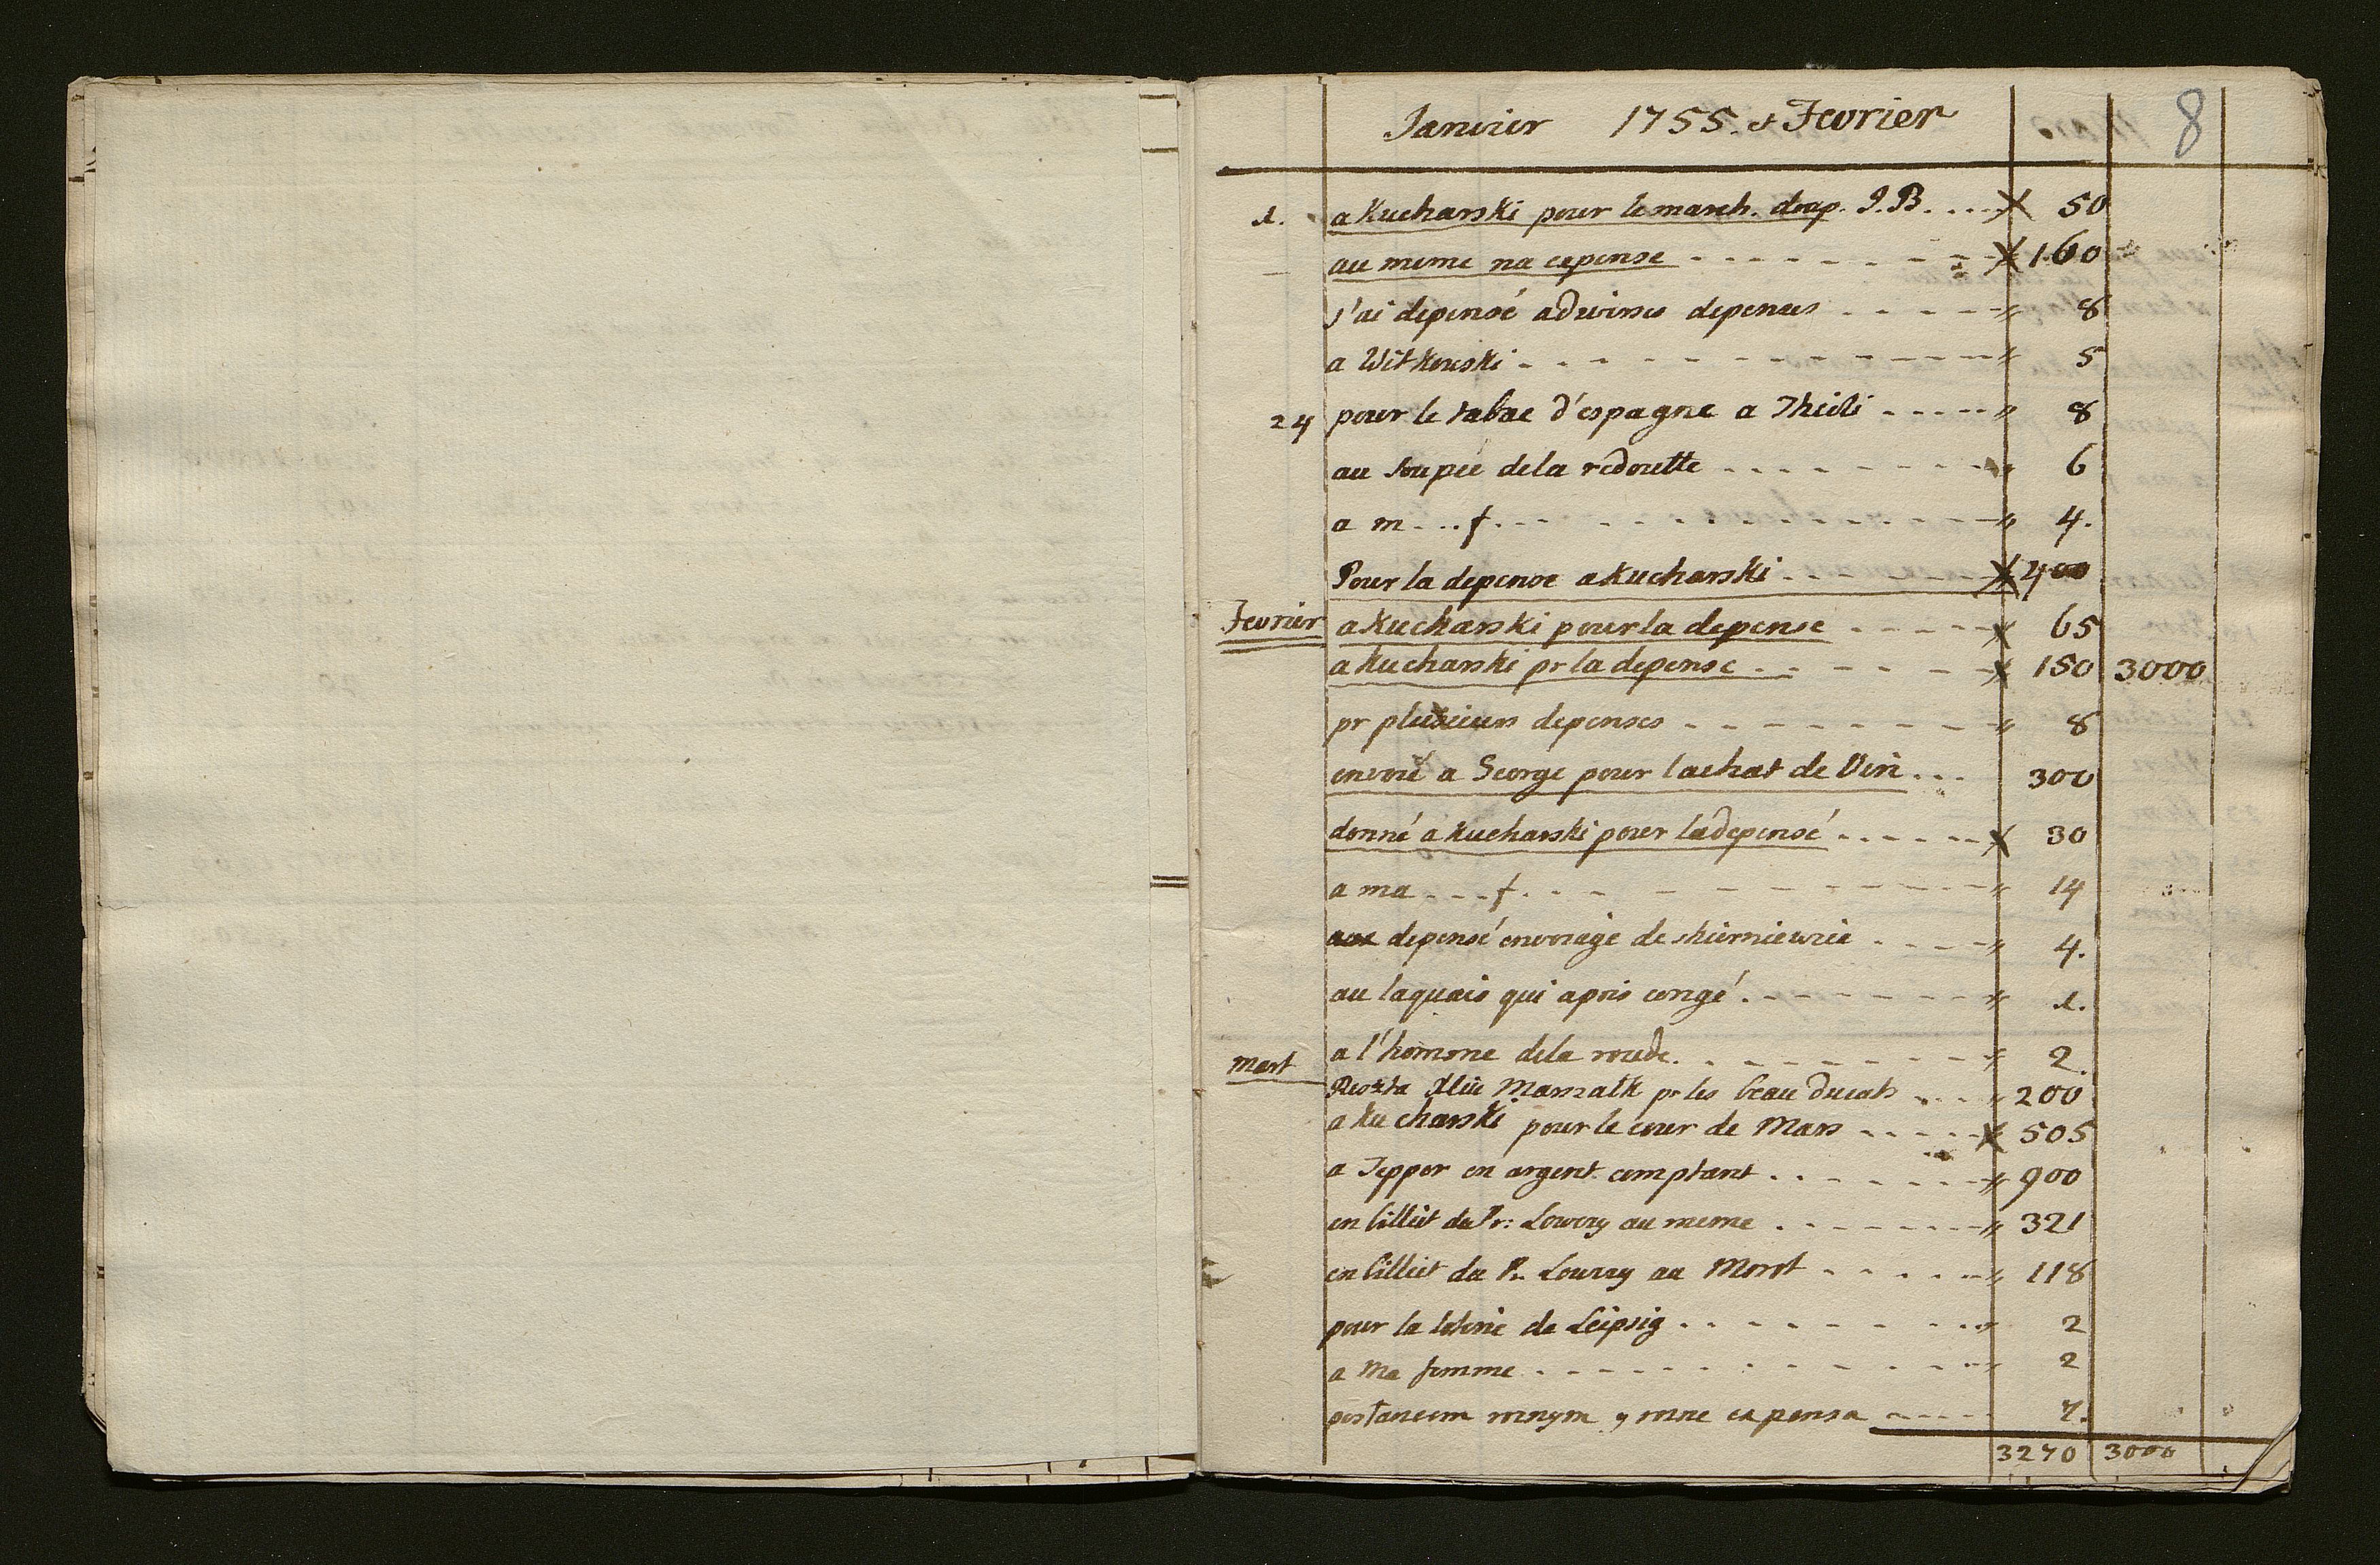 Janvier 1755. et Fevrier 8
1. a Kucharski pour le march. drap. I.B. .... 50
au meme na expense - - - 160
j'ai depensé a diverses depences - - - - 8
a Witkouski - - - 5
24 pour le tabac d'espagne a - - - - - 8
au soupée dela redoutte - - - 6
a m...f. - - - 4.
Pour la depense a Kucharski - - - 400
Fevrier a Kucharski pour la depense - - - 65
a Kucharski pr la depense - - - 150 3000
pr plusieurs depenses - - - 8
envoié a George pour lachat de Vin ... 300
donné a Kucharski pour la depensé - - - 30
a ma ... f. - - - 14
depensé en voiage de skierniewice - - - 4.
au laquais qui a pris congé. - - - 1.
Mart a l'homme dela - - - 2.
Reszta Marszalk pr les beau ducats - - - 200
a Kucharski pour le cour de Mars - - - 505
a Tepper en argent comptant - - - 900
en billiet du Pr: Lowczy au meme - - - 321
en billiet du Pr. Lowczy au - - - 118
pour la loterie de Leipsig - - - 2
a Ma femme - - - 2
expensa - - - 7.
3270 3000